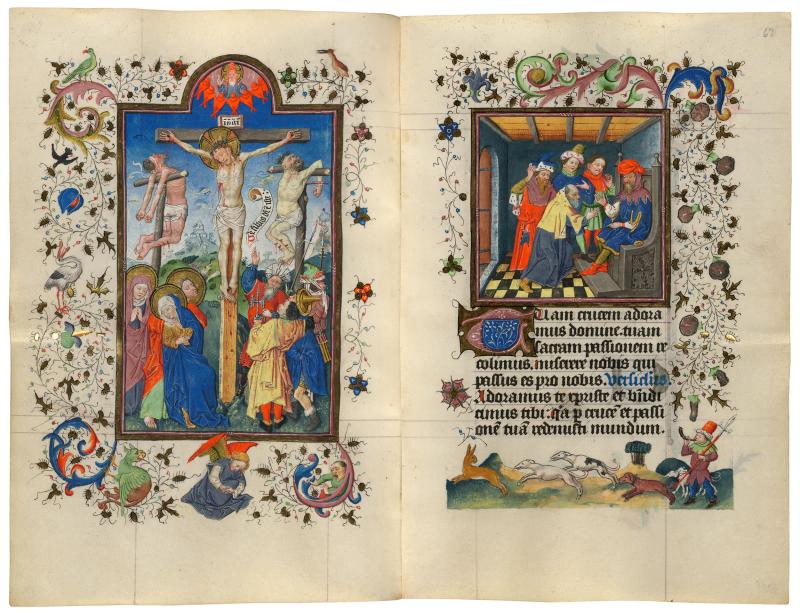 INRI
Tuam crucem adora
mus domine. tuam
sacram passionem re
colimus. miserere nobis qui
passus es pro nobis. Versiclus.
Adoramus te xpiste et bñdi
cimus tibi: q̄a p crucē et passi
onē tuā redemisti mundum.